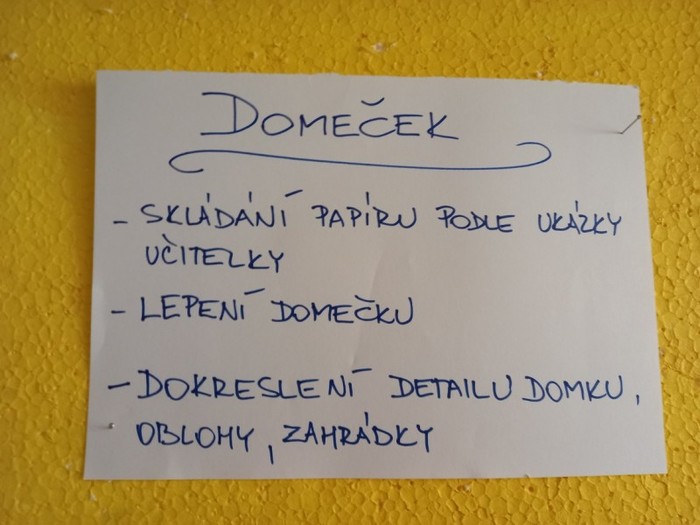 DOMEČEK
- SKLÁDÁNÍ PAPÍRU PODLE UKÁZKY
UČITELKY
- LEPENÍ DOMEČKU
- DOKRESLENÍ DETAILU DOMKU,
OBLOHY, ZAHRÁDKY